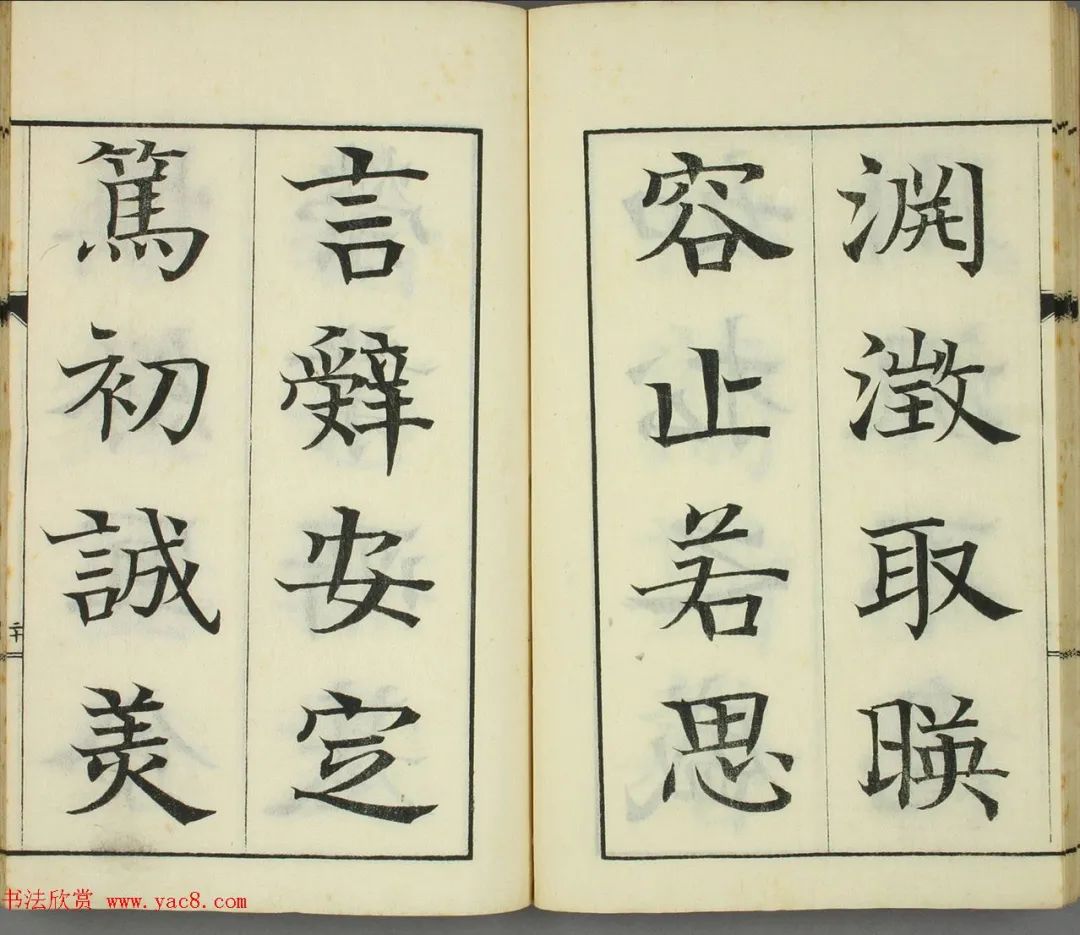 淵澂取暎
容止若思
言辤安定
篤初誠羙
二十
书法欣赏 www.yac8.com